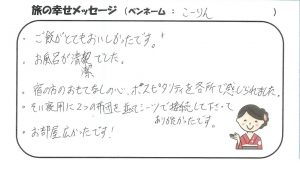 旅の幸せメッセージ (ペンネーム : こーりん )
・ご飯がとてもおいしかったです。!
・お風呂が清潔でした。
潔
・宿の方のおもてなしの心、ホスピタリティを各所で感じられました。
・そい寝用に2つの布団を並べシーツで接続して下さって
ありがたかったです。
・お部屋広かったです!